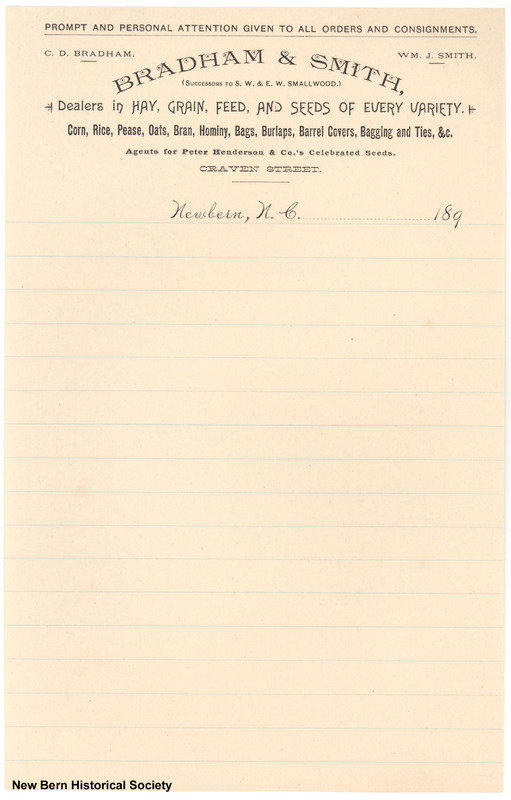 PROMPT AND PERSONAL ATTENTION GIVEN TO ALL ORDERS AND CONSIGNMENTS.
C. D. BRADHAM. WM. J. SMITH.
BRADHAM & SMITH,
(SUCCESSORS TO S. W. & E. W. SMALLWOOD.)
Dealers in HAY, GRAIN, FEED, AND SEEDS OF EVERY VARIETY.
Corn, Rice, Pease, Oats, Bran, Hominy, Bags, Burlaps, Barrel Covers, Bagging and Ties, &c.
Agents for Peter Henderson & Co.'s Celebrated Seeds.
CRAVEN STREET.
Newbern, N. C. 189
New Bern Historical Society